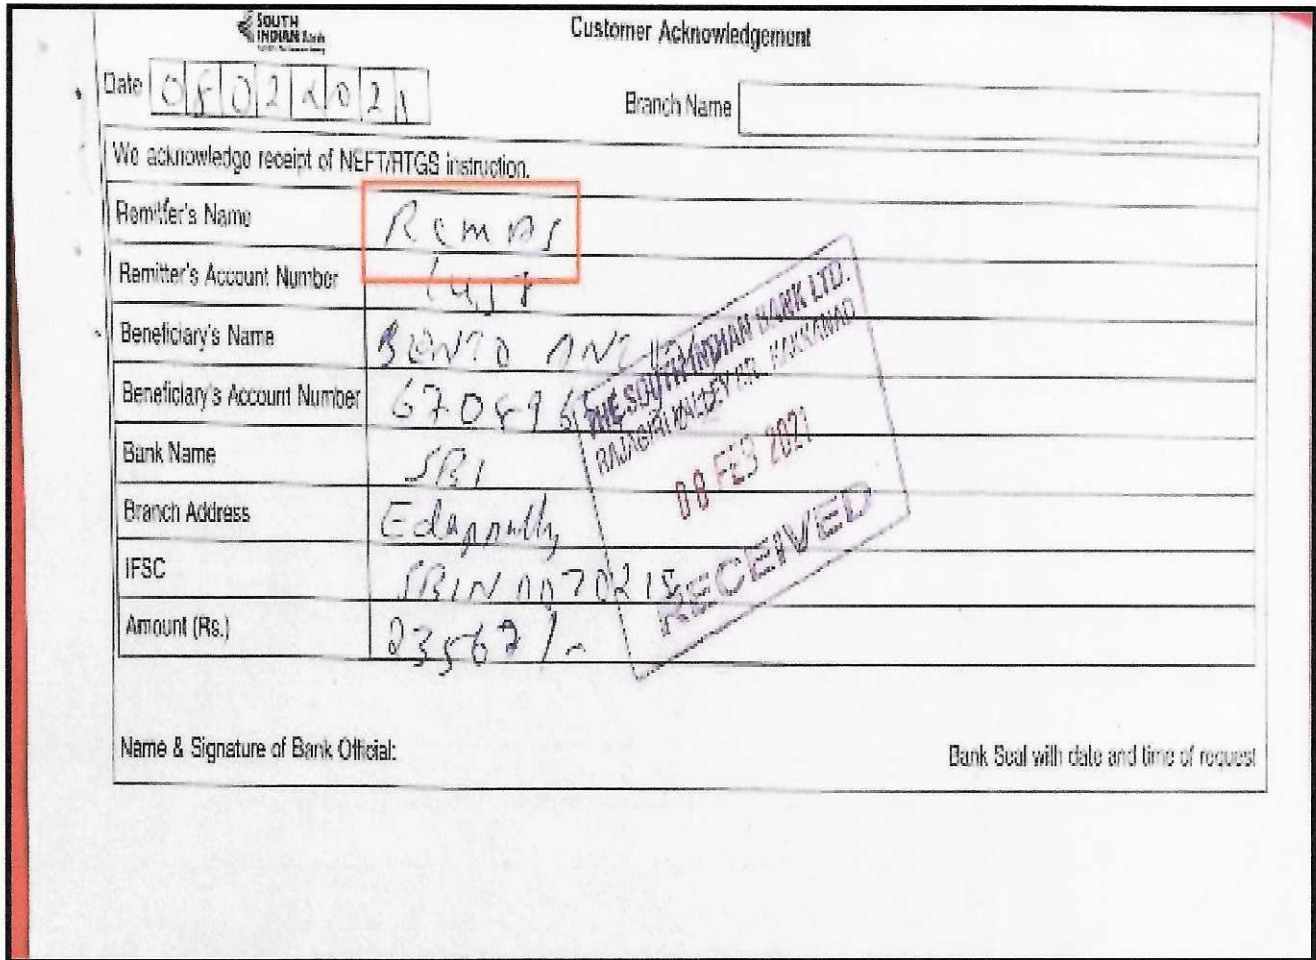 SOUTH
INDIAN Bank
Customer Acknowledgement
Date 08022021
Branch Name
We acknowledge receipt of NEFT/RTGS instruction.
Remitter's Name
Remitter's Account Number
Beneficiary's Name
Beneficiary's Account Number 67089
Bank Name SBI
Branch Address Edappally
IFSC SBIN0070218
Amount (Rs.) 23567/-
THE SOUTH INDIAN BANK LTD.
08 FEB 2021
RECEIVED
Name & Signature of Bank Official:
Bank Seal with date and time of request